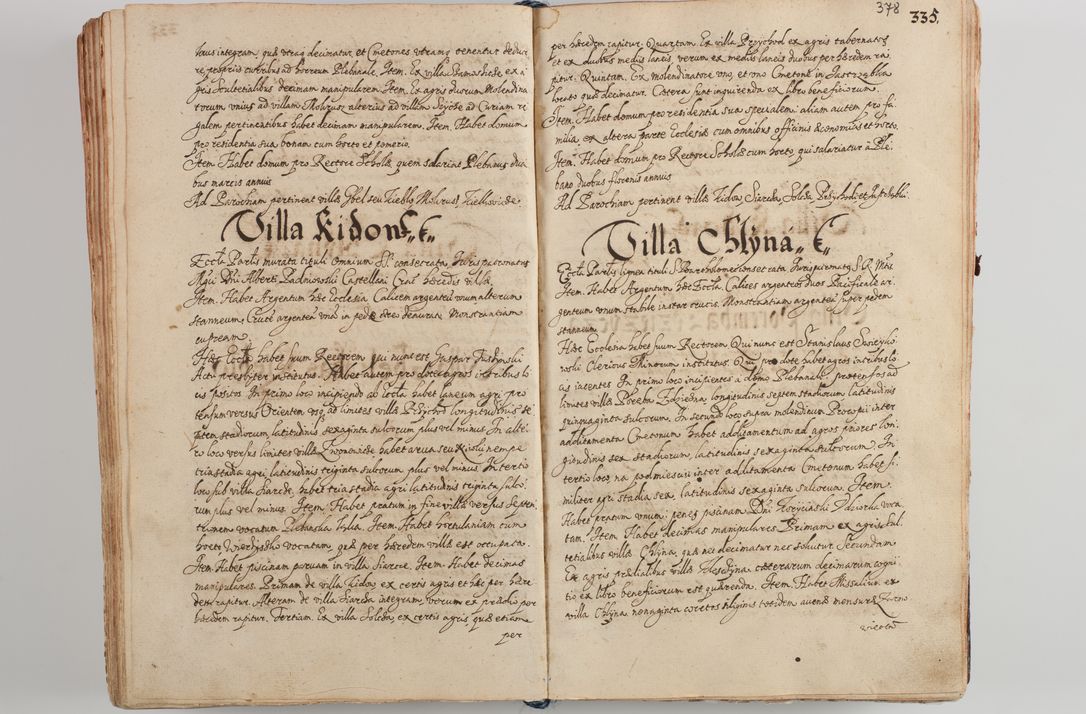 teus integram, quæ utraq decimatur, et Cmetones utranq tenentur deduce
re propriis curribus ad horreum Plebanale. Item. Ex villa
gris Scultetialibus decimam manipularem. Item. Ex agris duorum Molendina
torum unius ad villam Mokrusz alterius ad villam ad Curiam re
galem pertinentibus habet decimam manipularem. Item. Habet domum
pro residentia sua bonam cum horto et pomerio.
Item Habet domum pro Rectore Scholæ, quem salariat Plebanus dua
bus marcis annuis
Ad Parochiam pertinent villæ Gbel seu Kieblo Mokrusz Kielkowice.
Villa Kidow
Eccla Parlis murata tituli Omnium SS. consecrata, Juris patronatus
Mgci Dni Alberti Padniewski Castellani Crac hæredis villæ.
Item. Habet Argentum hæc Ecclesia. Calicem argenteum unum alterum
stanneum, Crucem argenteam unam in pede ære denuratam. Monstrantiam
cupream.
Hæc Eccla habet suum Rectorem qui nunc est Gaspar
Actu presbyter institutus. Habet autem pro dote agros in tribus lo
cis positos. In primo loco incipiendo ab Eccla habet laneum agri pro
tensum versus Orientem usq ad limites villæ Przychod longitudinis se
ptem stadiorum, latitudinis sexaginta sulcorum plus vel minus. In alte
ro loco versus limites villæ habet arva seu nempe
tria stadia agri latitudinis triginta sulcorum plus vel minus. In tertio
loco sub villa Siarcde, habet tria stadia agri latitudinis triginta sulco
rum plus vel minus. Item. Habet pratum in fine villæ versus Septen
trionem vocatum Plebanska Item. Habet hortulaniam cum
horto vocatam, quæ per hæredem villæ est occupata.
Item Habet piscinam parvam in villa Siarcce. Item. Habet decimas
manipulares. Primam de villa Kidow ex certis agris et hæc per hære
dem rapitur. Alteram de villa Siarcda integram, verum ex prædio per
hæredem rapitur. Tertiam. Ex villa Soleda, ex certis agris quæ etiam
per
378
335.
per hæredem rapitur. Quartam. Ex villa Przychod ex agris tabernatorum
et ex duobus mediis laneis, verum ex mediis laneis duobus per hæredem ra
pitur. Quintam. Ex Molendinatore uno, et uno Cmetone in
quæ decimatur. Cætera sunt inquirenda ex libro beneficiorum.
Item. Habet domum pro residentia sua specialem, aliam autem pro fa
milia, ex altera parte Ecclesiæ cum omnibus officinis æconomiæ et horto.
Item. Habet domum pro Rectore Scholæ cum horto, qui salariatur à Ple
bano duobus florenis annuis
Ad Parochiam pertinent villæ Kidow, Siarcda, Soleda Przychod et
Villa Chlyna
Eccla Parlis lignea tituli S. Bartholomei consecrata Jurispatronatus S. R. Mtis
Item. Habet Argentum hæc Eccla. Calices argenteos duos Pacificale ar
genteum unum stabile instar crucis. Monstrantiam argenteam super pedem
stanneum
Hæc Ecclesia habet suum Rectorem Qui nunc est Stanislaus
wski Clericus Minorum institutus. Qui pro dote habet agros in tribus lo
cis iacentes. In primo loco incipientes à domo Plebanali protensos ad
limites villæ Poreba longitudinis septem stadiorum, latitudinis
quinquaginta sulcorum. In secundo loco supra molendinum Procopii inter
additamenta Cmetonum habet additamentum ad agros priores lon
gitudinis sex stadiorum, latitudinis sexaginta sulcorum. In
tertio loco na podmiescu inter additamenta Cmetonum habet si
militer agri stadia sex, latitudinis sexaginta sulcorum. Item.
Habet pratum unum, penes piscinam Dni voca
tam. Item. Habet decimas manipulares Primam ex agris Scul
tetialibus villæ Chlyna, quæ nec decimatur nec solvitur Secundam
Ex agris prædialibus villæ cæterarum decimarum cogni
tio ex libro beneficiorum est quærenda. Item. Habet Missalium ex
villa Chlyna nonaginta coretos siliginis totidem avenæ mensuræ Zarno
viecen